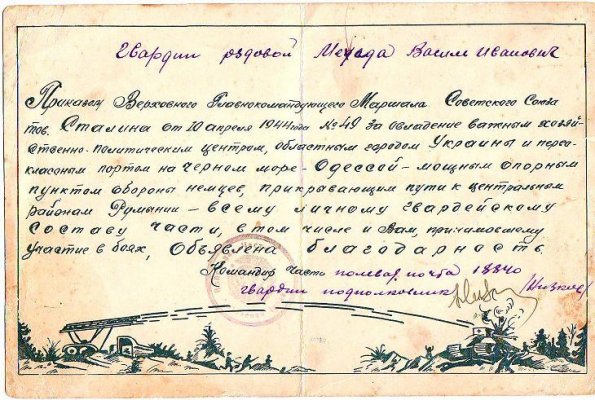 Гвардии рядовой Василий Иванович
Приказом Верховного Главнокомандующего Маршала Советского Союза
тов. Сталина от 10 апреля 1944 года № 49 за овладение важным хозяй-
ственно-политическим центром, областным городом Украины и перво-
классным портом на Черном море - Одессой - мощным опорным
пунктом обороны немцев, прикрывающим пути к центральным
районам Румынии - всему личному гвардейскому
составу части, в том числе и Вам, принимавшему
участие в боях, Объявлена благодарность.
Командир часть полевая почта 18840
гвардии подполковник